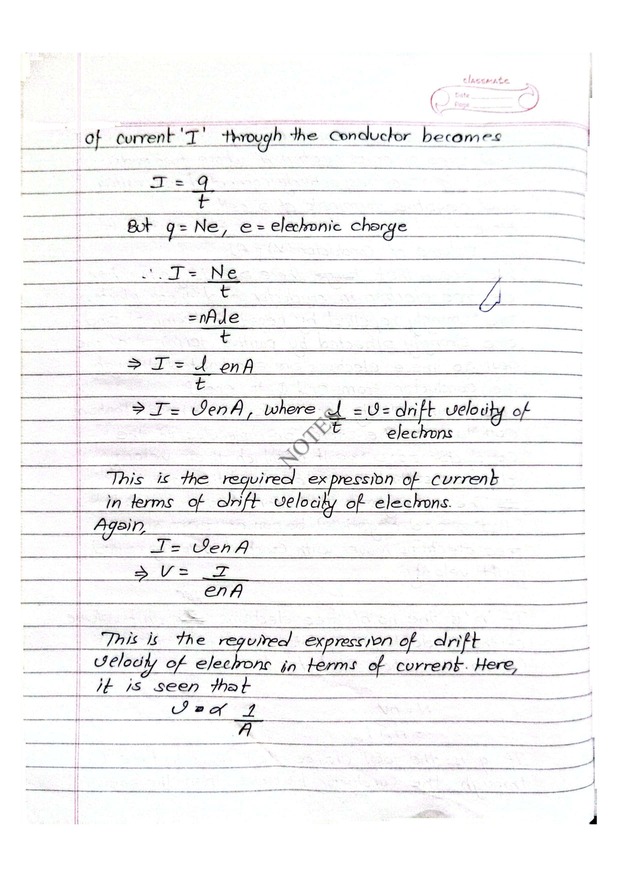 classmate
Date
Page
of current 'I' through the conductor becomes
I = q/t
But q = Ne, e = electronic charge
∴ I = Ne/t
= nAle/t
⇒ I = l/t enA
⇒ I = ϑenA, where l/t = ϑ = drift velocity of
electrons
NOTES
This is the required expression of current
in terms of drift velocity of electrons.
Again,
I = ϑenA
⇒ V = I/enA
This is the required expression of drift
velocity of electrons in terms of current. Here,
it is seen that
ϑ ∝ 1/A